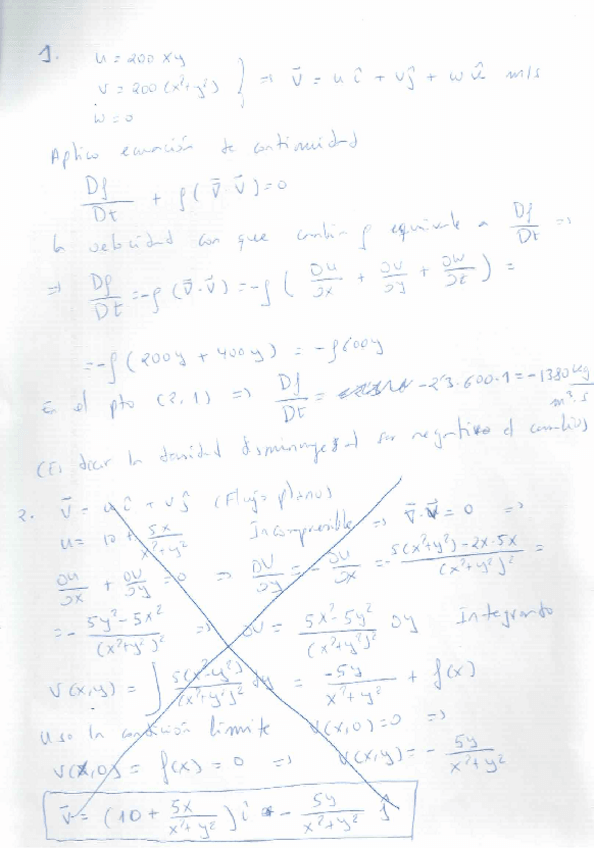 1. u = 200 xy
v = 200 (x²+y²) } ⇒ V̄ = u î + v ĵ + w k̂ m/s
w = 0
Aplico ecuación de continuidad
Dρ/Dt + ρ(∇̄·V̄) = 0
la velocidad con que cambia ρ equivale a Dρ/Dt ⇒
⇒ Dρ/Dt = -ρ(∇̄·V̄) = -ρ( ∂u/∂x + ∂v/∂y + ∂w/∂z ) =
= -ρ(200y + 400y) = -ρ600y
En el pto (2,1) ⇒ Dρ/Dt = -2'3·600·1 = -1380 kg/m³·s
(Es decir la densidad al ser negativo el cambio)
2. V̄ = u î + v ĵ (Flujo plano)
u = 10 + 5x/(x²+y²) Incompresible ⇒ ∇̄·V̄ = 0 ⇒
∂u/∂x + ∂v/∂y = 0 ⇒ ∂v/∂y = - ∂u/∂x = - (5(x²+y²) - 2x·5x)/(x²+y²)² =
= - (5y² - 5x²)/(x²+y²)² ⇒ ∂v = (5x² - 5y²)/(x²+y²)² ∂y Integrando
v(x,y) = ∫ 5(x²-y²)/(x²+y²)² dy = -5y/(x²+y²) + f(x)
Uso la condición límite v(x,0) = 0 ⇒
v(x,0) = f(x) = 0 ⇒ v(x,y) = - 5y/(x²+y²)
V̄ = (10 + 5x/(x²+y²)) î - 5y/(x²+y²) ĵ